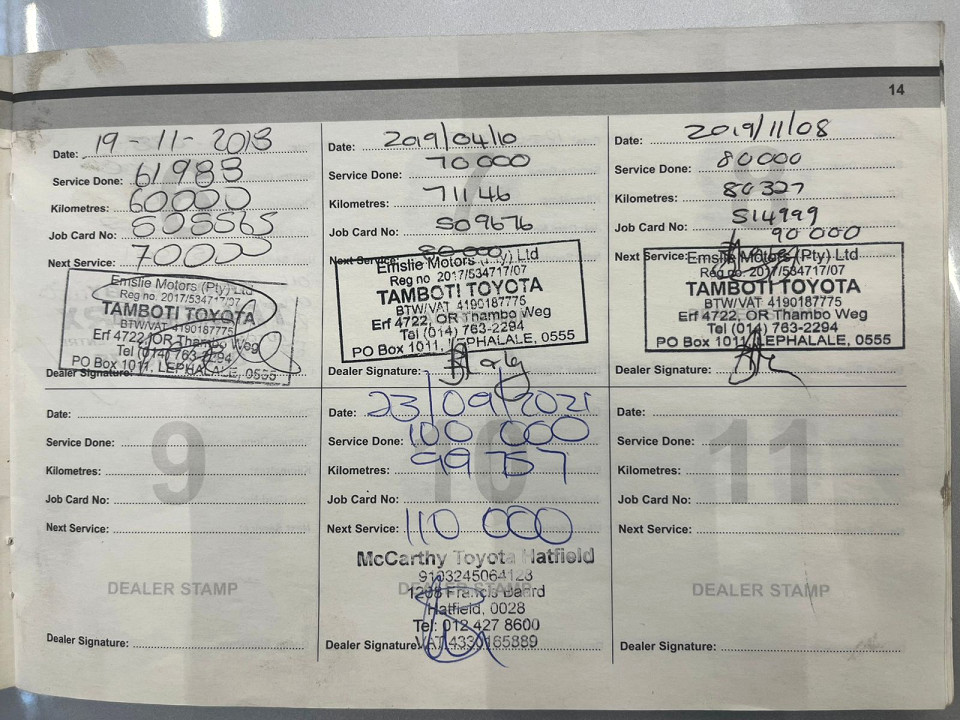 14
Date: 19-11-2018
Service Done: 61988
Kilometres: 60000
Job Card No: 505565
Next Service: 70000
Emslie Motors (Pty) Ltd
Reg no. 2017/534717/07
TAMBOTI TOYOTA
BTW/VAT 4190187775
Erf 4722, OR Thambo Weg
Tel (014) 763-2294
PO Box 1011, LEPHALALE, 0555
Dealer Signature:
Date: 2019/04/10
Service Done: 70000
Kilometres: 71146
Job Card No: 509676
Next Service: 80000
Emslie Motors (Pty) Ltd
Reg no. 2017/534717/07
TAMBOTI TOYOTA
BTW/VAT 4190187775
Erf 4722, OR Thambo Weg
Tel (014) 763-2294
PO Box 1011, LEPHALALE, 0555
Dealer Signature:
8
Date: 2019/11/08
Service Done: 80000
Kilometres: 80327
Job Card No: 514999
90000
Next Service:
Emslie Motors (Pty) Ltd
Reg no. 2017/534717/07
TAMBOTI TOYOTA
BTW/VAT 4190187775
Erf 4722, OR Thambo Weg
Tel (014) 763-2294
PO Box 1011, LEPHALALE, 0555
Dealer Signature:
9
Date:
Service Done:
Kilometres:
Job Card No:
Next Service:
DEALER STAMP
Dealer Signature:
10
Date: 23/09/2021
Service Done: 100 000
Kilometres: 99757
Job Card No:
Next Service: 110 000
McCarthy Toyota Hatfield
9103245064123
DEALER STAMP
1208 Francis Baard
Hatfield, 0028
Tel: 012 427 8600
Dealer Signature:
VAT 4330165889
11
Date:
Service Done:
Kilometres:
Job Card No:
Next Service:
DEALER STAMP
Dealer Signature: